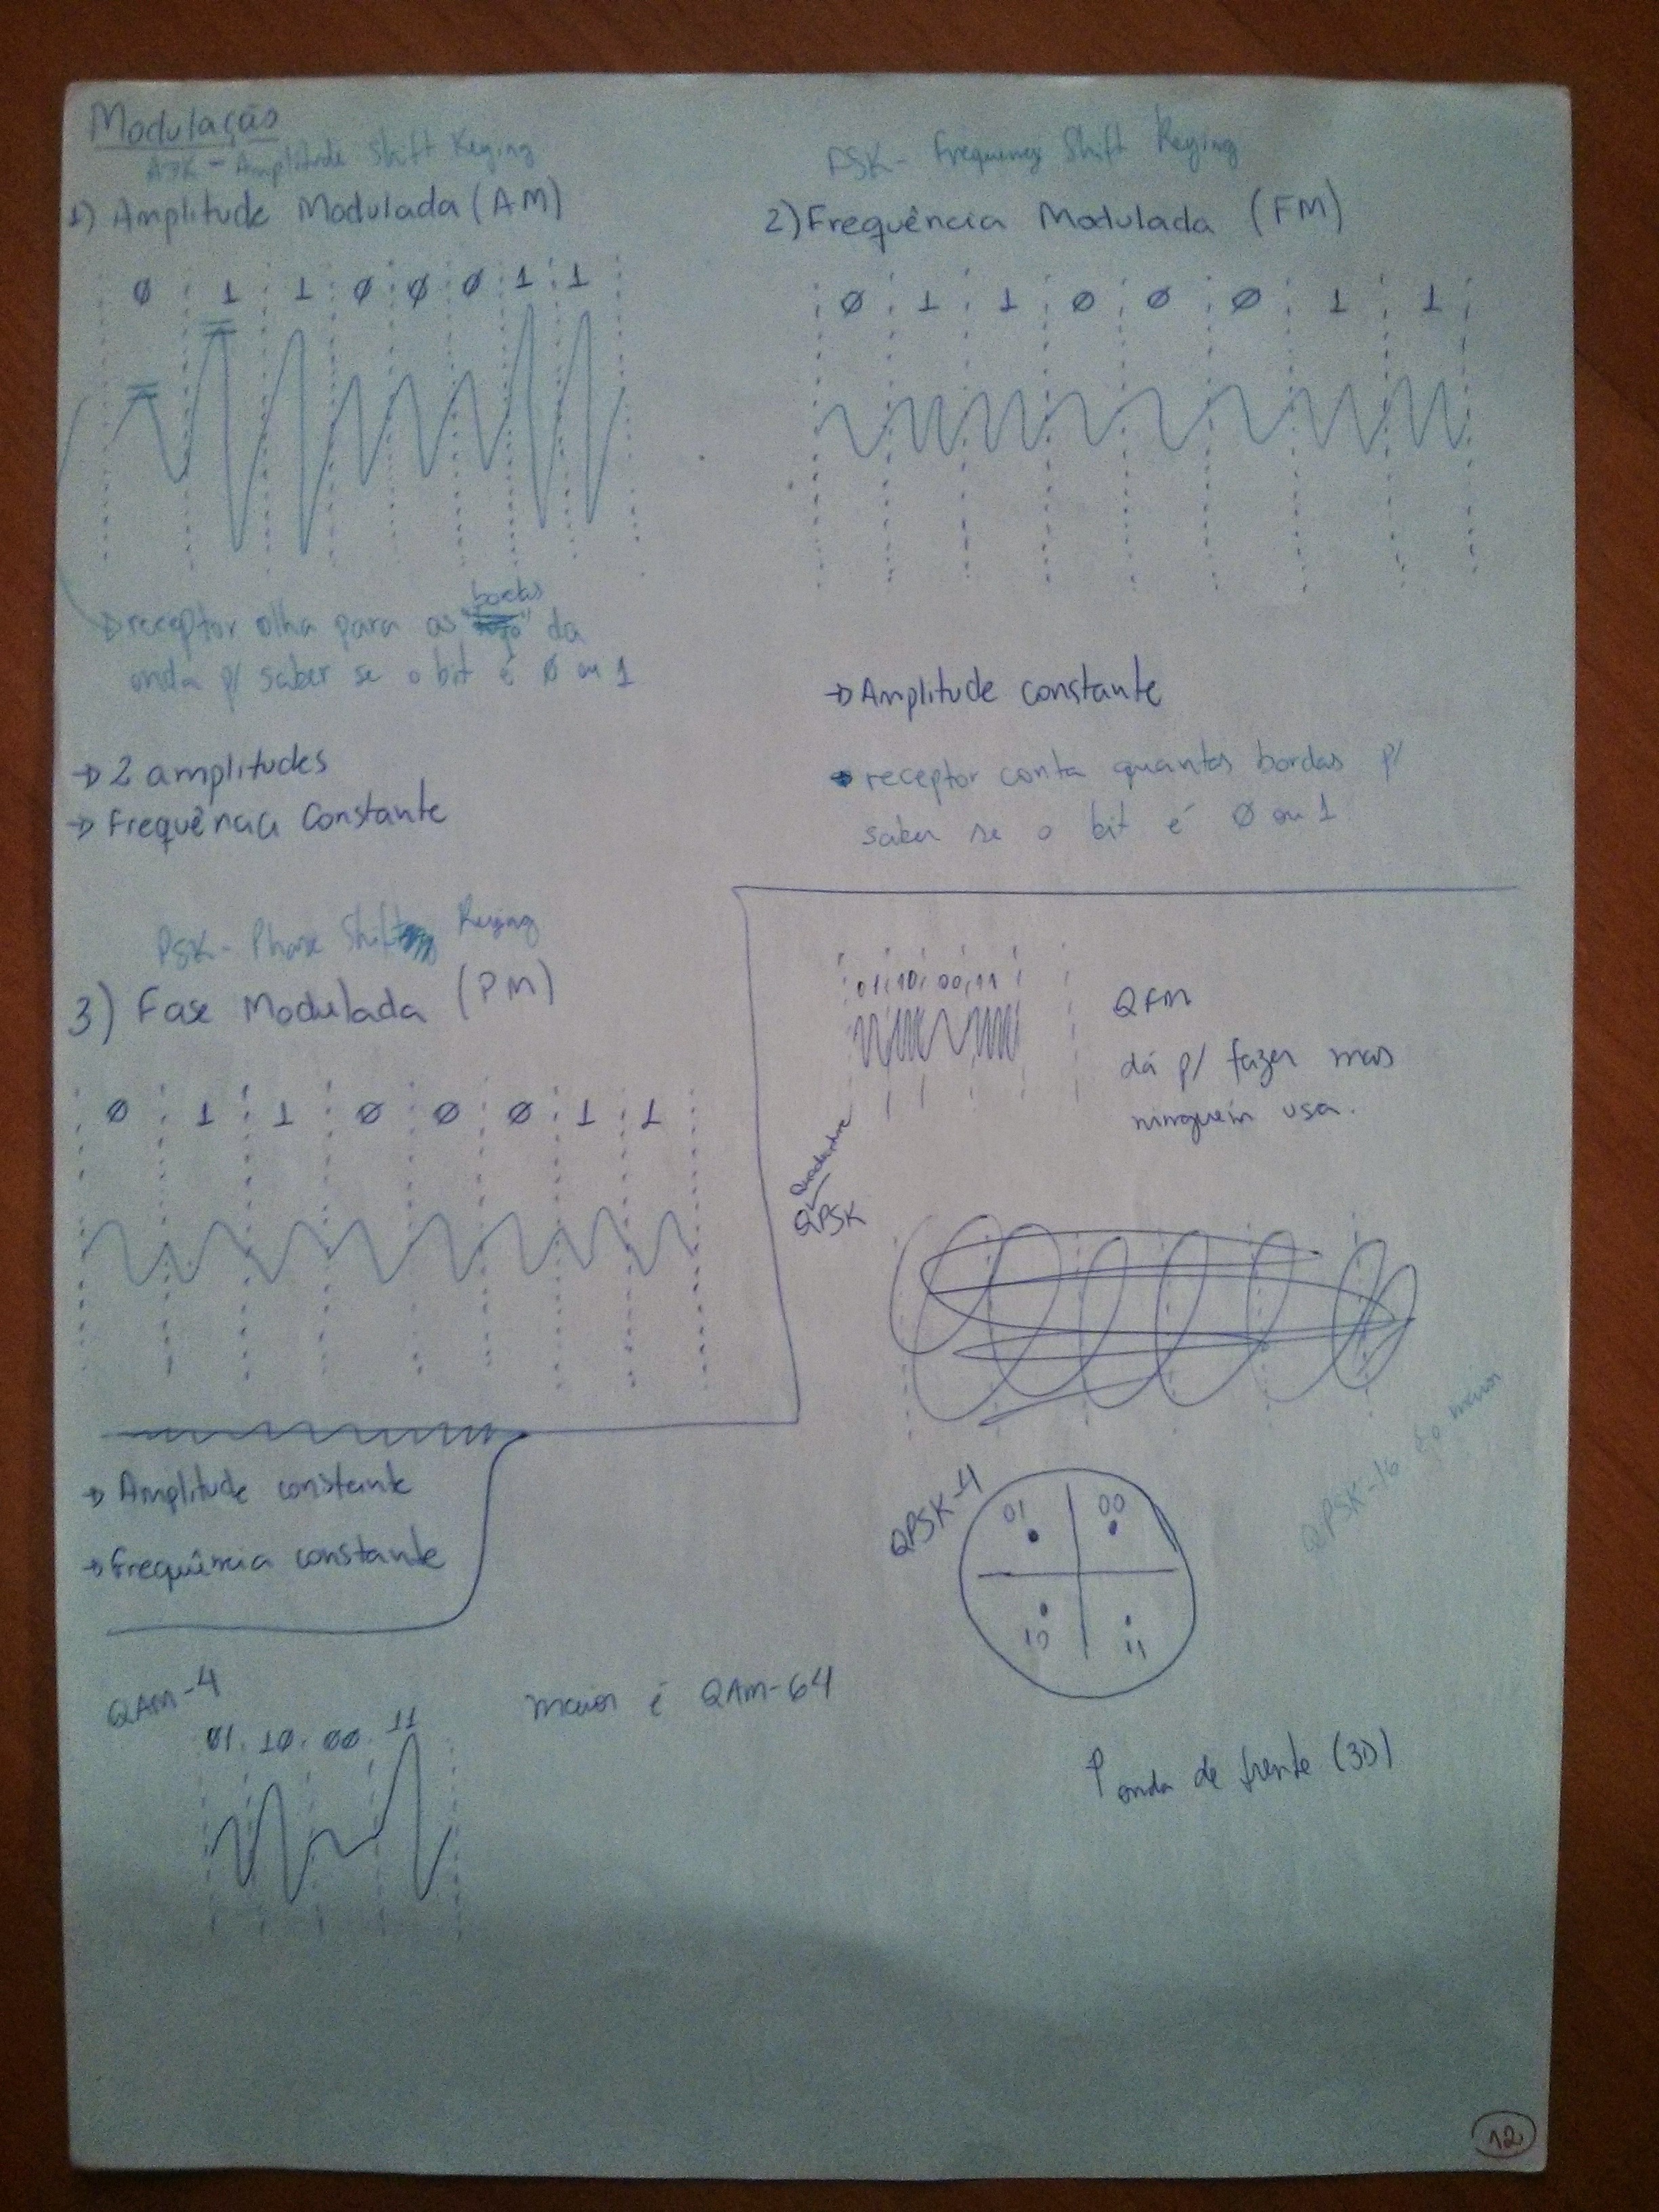 Modulação
ASK - Amplitude Shift Keying
1) Amplitude Modulada (AM)
0 1 1 0 0 0 1 1
bordas
receptor olha para as " " da
onda p/ saber se o bit é 0 ou 1
→ 2 amplitudes
→ Frequência Constante
FSK - Frequency Shift Keying
2) Frequência Modulada (FM)
0 1 1 0 0 0 1 1
→ Amplitude constante
receptor conta quantas bordas p/
saber se o bit é 0 ou 1
PSK - Phase Shift Keying
3) Fase Modulada (PM)
0 1 1 0 0 0 1 1
→ Amplitude constante
→ Frequência constante
01 10 00 11
QFM
dá p/ fazer mas
ninguém usa.
Quadrature
QPSK
QPSK-4
01 00
10 11
QPSK-16 é o maior
↑ onda de frente (3D)
QAM-4
01 10 00 11
maior é QAM-64
12